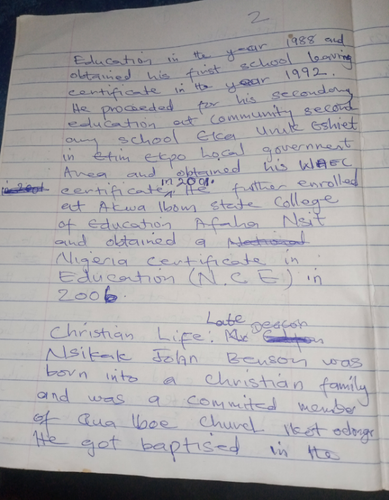 2
Education in the year 1988 and
obtained his first school leaving
certificate in the year 1992.
He proceeded for his secondary
education at Community second
ary school Eka Unuk Eshiet
in Etim Ekpo Local government
Area and obtained his WAEC
certificate in 2001. He further enrolled
at Akwa Ibom State College
of Education Afaha Nsit
and obtained a
Nigeria certificate in
Education (N.C.E) in
2006.
Christian Life: Late Deacon
Nsikak John Benson was
born into a christian family
and was a commited member
of Qua Iboe Church Ikot
He got baptised in the